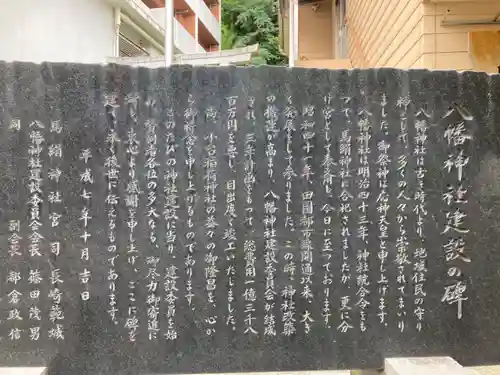 八幡神社建設の碑
八幡神社は古き時代より、地域住民の守り
神として、多くの人々から崇敬されてまいり
ました。御祭神は応神天皇と申し上げます。
八幡神社は明治四十三年、神社統合令をも
って、馬絹神社に合祀されましたが、更に分
け宮として奉斎し、今日に至っております。
昭和四十一年、田園都市線開通以来、大き
く発展をして参りました。この時、神社改築
の機運が高まり、八幡神社建設委員会が結成
され、三年計画をもって、総費用一億三千八
百万円を要し、目出度く竣工いたしました。
尚、小台稲荷神社の益々の御隆昌を、心か
ら御祈念を申し上げるものであります。
このたびの神社建設に当り、建設委員を始
め、賛同者各位の多大なる、御尽力御寄進に
対し、衷心より感謝を申し上げ、ここに碑を
建て、永く後世に伝えるものであります。
平成七年十月吉日
馬絹神社宮司 長崎範城
八幡神社建設委員会会長 篠田茂男
同 副会長 部倉政信